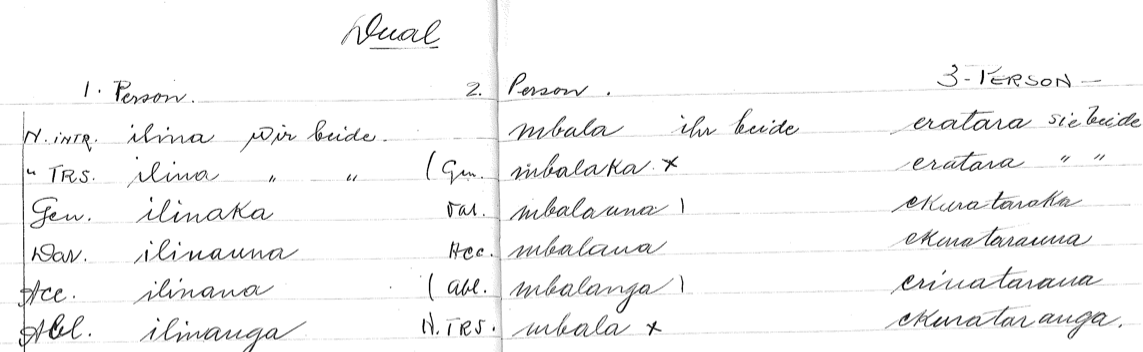 Dual
1. Person. 2. Person. 3-PERSON-
N. INTR. ilina wir beide. mbala ihr beide eratara sie beide
" TRS. ilina " " (Gen. mbalaka. x eratara " "
Gen. ilinaka Dat. mbalauna) ekurataraka
Dat. ilinauna Acc. mbalana ekuratarauna
Acc. ilinana (Abl. mbalanga) erinatarana
Abl. ilinanga N. TRS. mbala x ekurataranga.